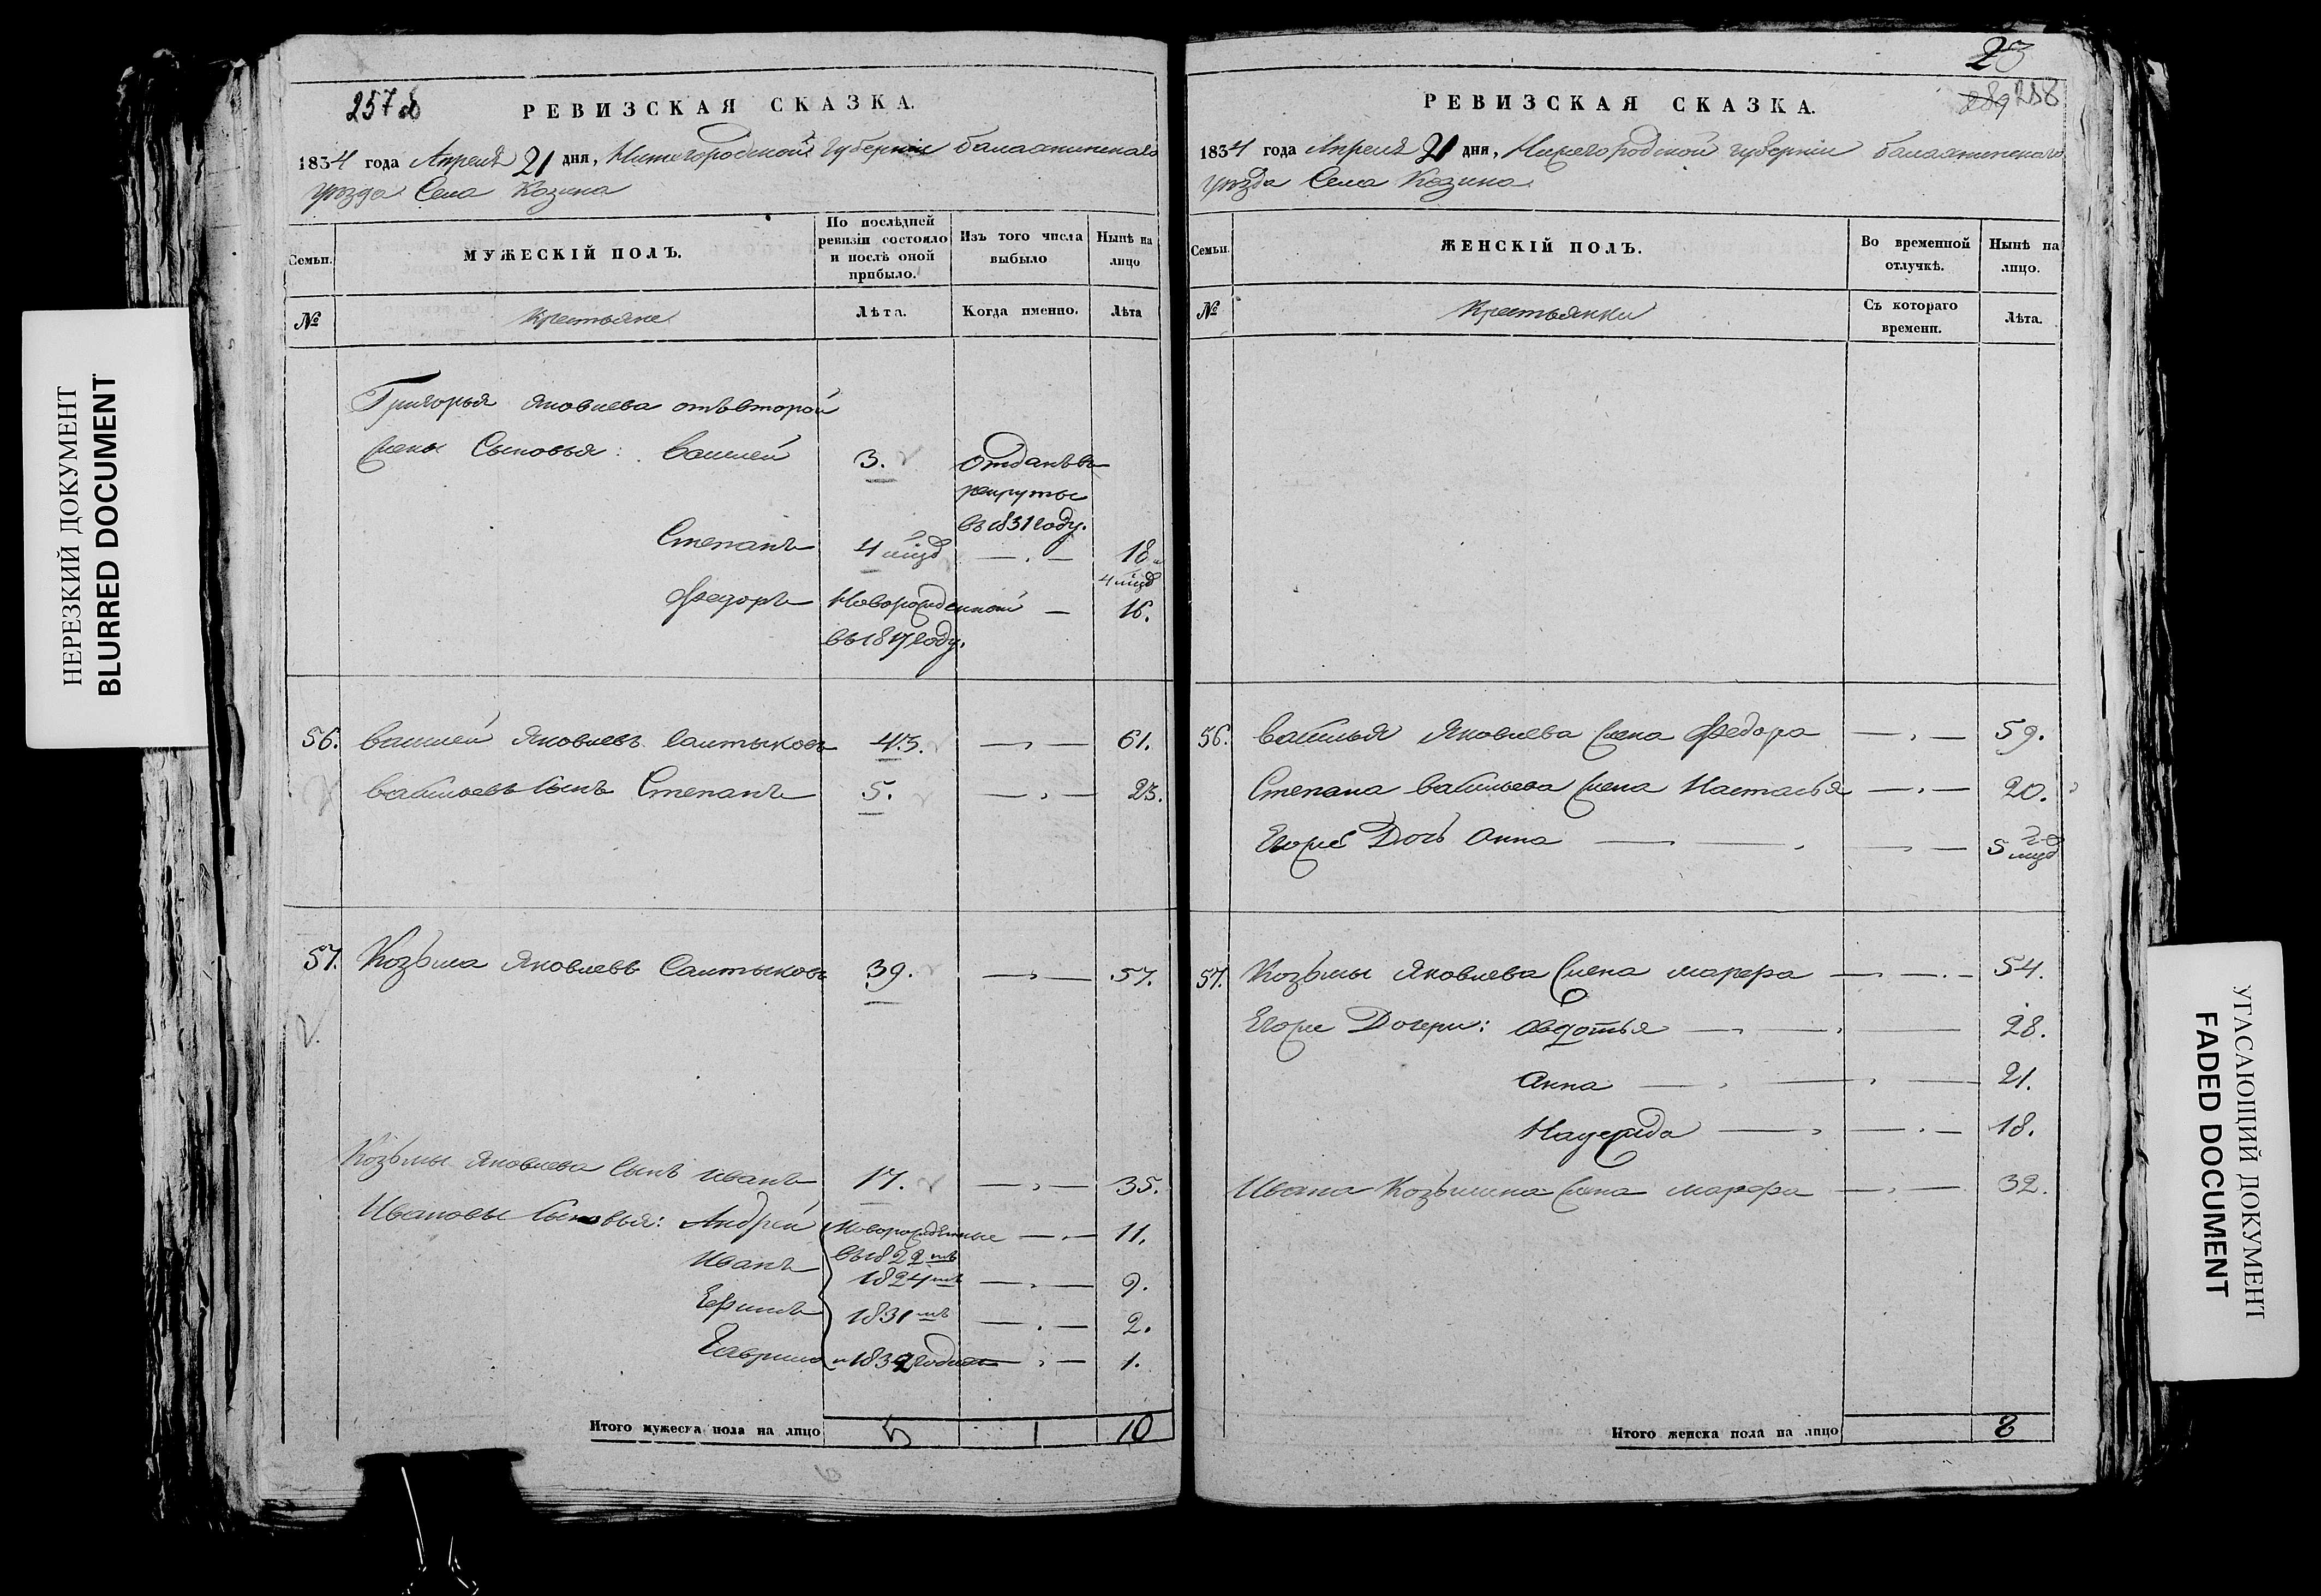 НЕРЕЗКИЙ ДОКУМЕНТ
BLURRED DOCUMENT
РЕВИЗСКАЯ СКАЗКА.
1834 года Апреля 21 дня, Нижегородской губернии Балахнинскаго
уезда Села Козина
Семьи.
МУЖЕСКІЙ ПОЛЪ.
По послѣдней
ревизіи состояло
и послѣ оной
прибыло.
Изъ того числа
выбыло
Нынѣ на
лицо
№
Крестьяне
Лѣта.
Когда именно.
Лѣта
Григорья Яковлева отъ второй
жены Сыновья: Василей 3. Отданъ въ
рекруты
въ 1831 году.
Степанъ 4 мѣсд 18
4 мѣсд
Федоръ Новорожденной 16.
въ 1817 году.
56. Василей Яковлевъ Салтыковъ 43. 61.
Васильевъ сынъ Степанъ 5. 23.
57. Козьма Яковлевъ Салтыковъ 39. 57.
Козьмы Яковлева сынъ Иванъ 17. 35.
Ивановы сыновья: Андрей Новорожденные 11.
въ 1822мъ
Иванъ 1824мъ 9.
Ефимъ 1831мъ 2.
Гаврило и 1832 годахъ 1.
Итого мужеска пола на лицо 5 1 10
23
289 258
РЕВИЗСКАЯ СКАЗКА.
1834 года Апреля 21 дня, Нижегородской губернии Балахнинскаго
уезда Села Козина
Семьи.
ЖЕНСКІЙ ПОЛЪ.
Во временной
отлучкѣ.
Нынѣ на
лицо.
№
Крестьянки
Съ котораго
времени.
Лѣта.
56. Василья Яковлева жена Федора 59.
Степана Васильева жена Настасья 20.
Егоже Дочь Анна 5 мѣсд
57. Козьмы Яковлева жена Марфа 54.
Егоже Дочери: Авдотья 28.
Анна 21.
Надежда 18.
Ивана Козьмина жена Марфа 32.
Итого женска пола на лицо 8
УГАСАЮЩИЙ ДОКУМЕНТ
FADED DOCUMENT